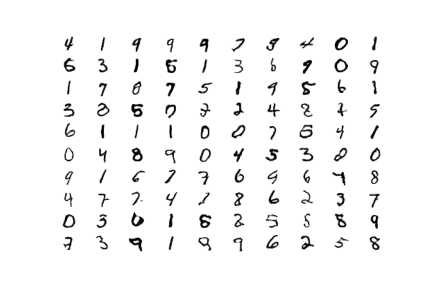 4 1 9 9 9 7 9 4 0 1
6 3 1 5 1 3 6 9 0 9
1 7 0 7 5 1 9 8 6 1
3 8 5 0 2 2 4 8 7 5
6 1 1 1 0 0 7 5 4 1
0 4 8 9 0 4 5 3 0 0
9 1 6 7 7 6 9 6 9 8
4 7 7 4 1 8 6 2 3 7
0 3 0 1 8 2 5 8 8 9
7 3 9 1 9 9 6 2 5 8